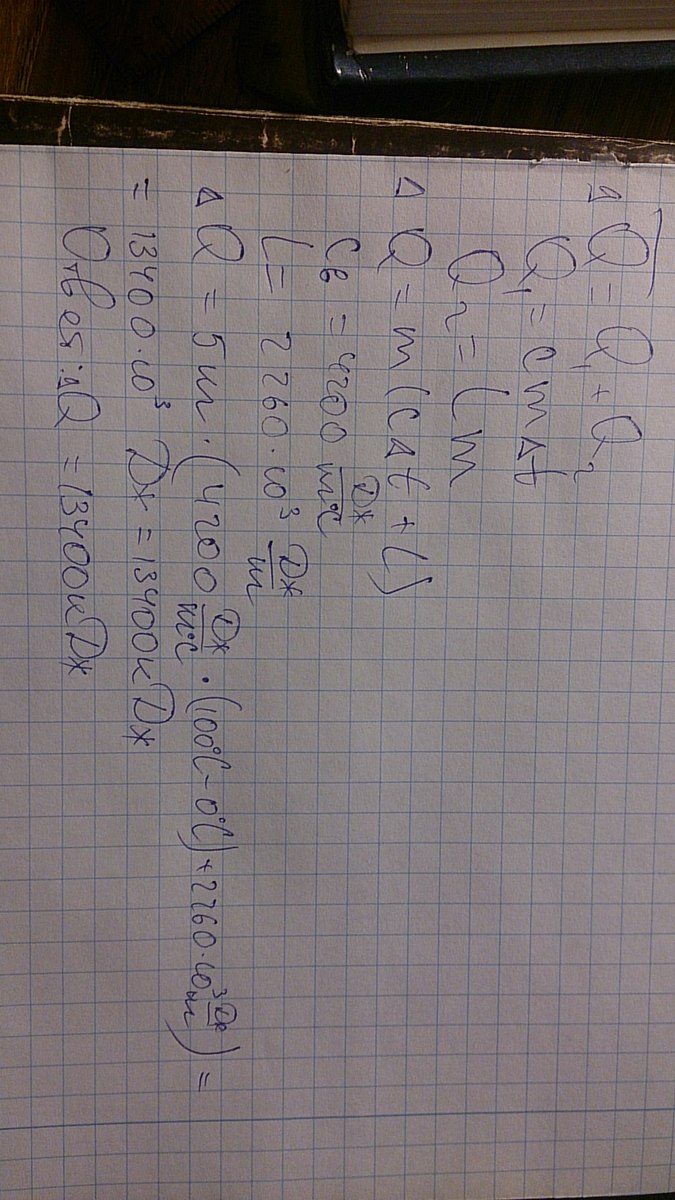 ΔQ = Q₁ + Q₂
Q₁ = cmΔt
Q₂ = Lm
ΔQ = m(cΔt + L)
Cв = 4200 Дж/кг°C
L = 2260·10³ Дж/кг
ΔQ = 5кг·(4200 Дж/кг°C · (100°C - 0°C) + 2260·10³ Дж/кг) =
= 13400·10³ Дж = 13400кДж
Ответ: ΔQ = 13400кДж